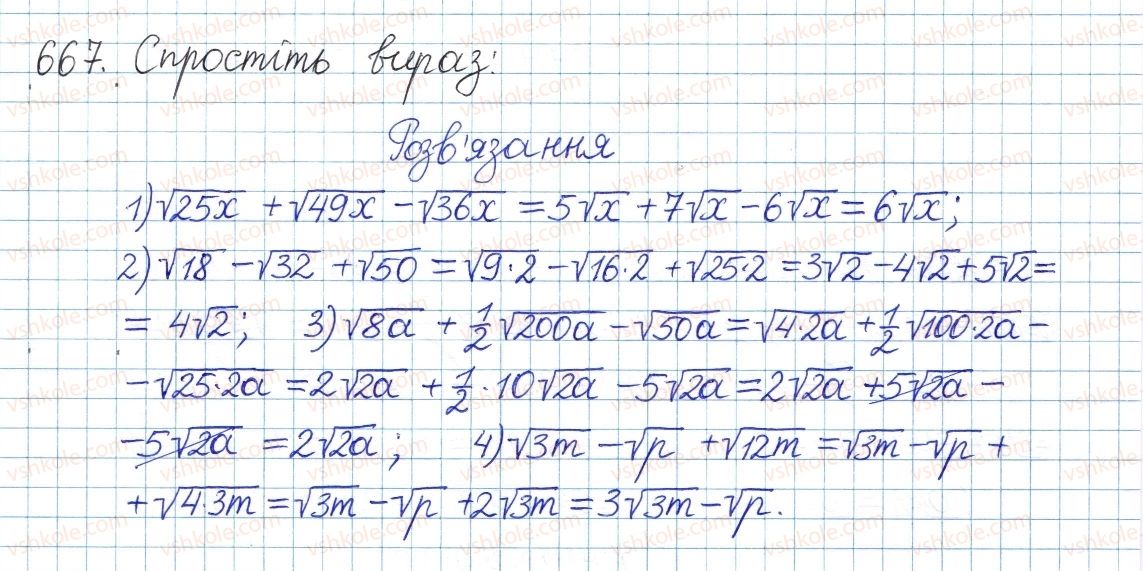 667. Спростіть вираз:
Розв'язання
1) √25x + √49x − √36x = 5√x + 7√x − 6√x = 6√x;
2) √18 − √32 + √50 = √9·2 − √16·2 + √25·2 = 3√2 − 4√2 + 5√2 =
= 4√2; 3) √8a + 1/2 √200a − √50a = √4·2a + 1/2 √100·2a −
− √25·2a = 2√2a + 1/2 · 10√2a − 5√2a = 2√2a + 5√2a −
− 5√2a = 2√2a; 4) √3m − √p + √12m = √3m − √p +
+ √4·3m = √3m − √p + 2√3m = 3√3m − √p.